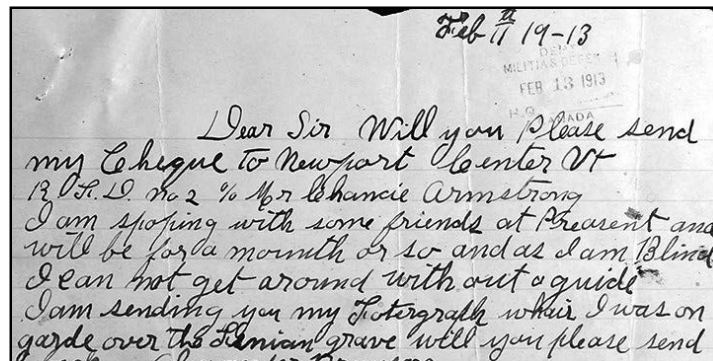 Feb 11 19-13
DEPT
MILITIA & DEFENCE
FEB 13 1913
H.Q. CANADA
Dear Sir Will you Please send
my Cheque to Newport Center Vt
R.F.D. no 2 % Mr Chancie Armstrong
I am stoping with some friends at Preasent and
will be for a mounth or so and as I am Blind
I can not get around with out a guide
I am sending you my Fotergraph whair I was on
garde over the Fenian grave will you please send